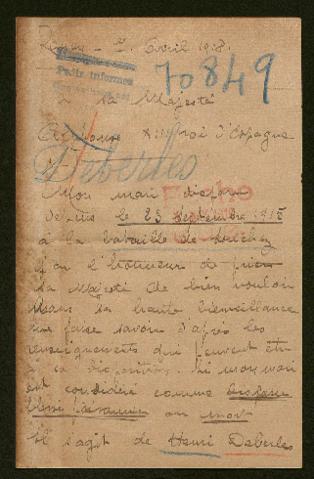 Avril 1918.
Pedir informes
70849
a sa Majesté
Alphonse XIII roi d'Espagne
Deberles
Mon mari disparu
depuis le 25 septembre 1915
à la bataille de Souchez
j'ai l'honneur de prier
sa Majesté de bien vouloir
dans sa haute bienveillance
me faire savoir d'après les
renseignements qui peuvent être
à sa disposition si mon mari
est considéré comme disparu
blessé prisonnier ou mort
il s'agit de Henri Deberles